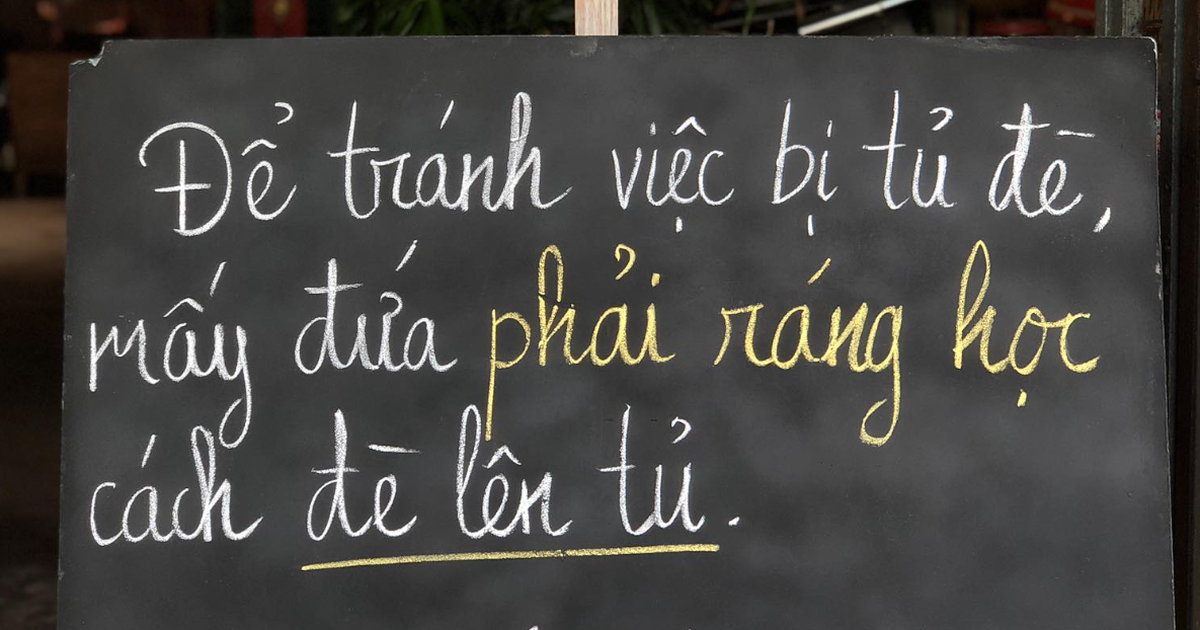 Để tránh việc bị tủ đè,
mấy đứa phải ráng học
cách đè lên tủ.